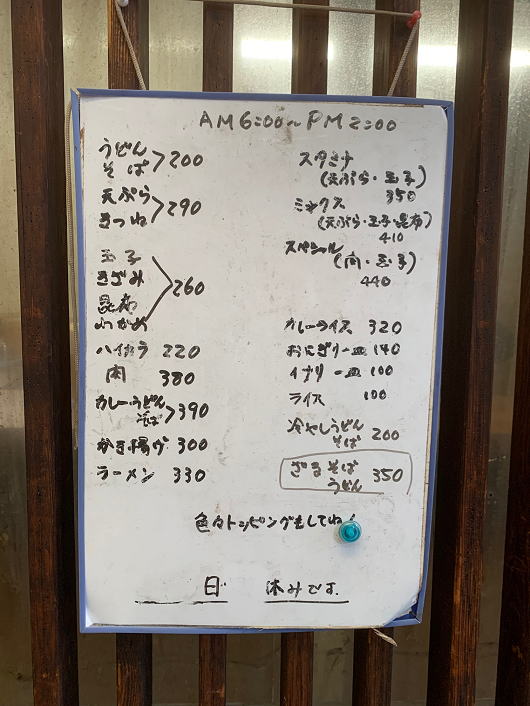 AM6:00~PM2:00
うどん
そば >200
天ぷら
きつね >290
玉子
きざみ
昆布
わかめ >260
ハイカラ 220
肉 380
カレーうどん
そば >390
かき揚げ 300
ラーメン 330
スタミナ
(天ぷら・玉子)
350
ミックス
(天ぷら・玉子・昆布)
410
スペシャル
(肉・玉子)
440
カレーライス 320
おにぎり一皿 140
イナリ一皿 100
ライス 100
冷やしうどん
そば 200
ざるそば
うどん 350
色々トッピングもしてね!
日 休みです.